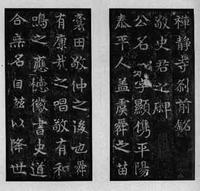 禪靜寺刹前銘
敬史君之碑
公字顯儁平陽
泰平人蓋虞舜之苗
裔田敬仲之後也舜
有康哉之唱敬有和
鳴之應德徽書史道
合無名自茲以降世